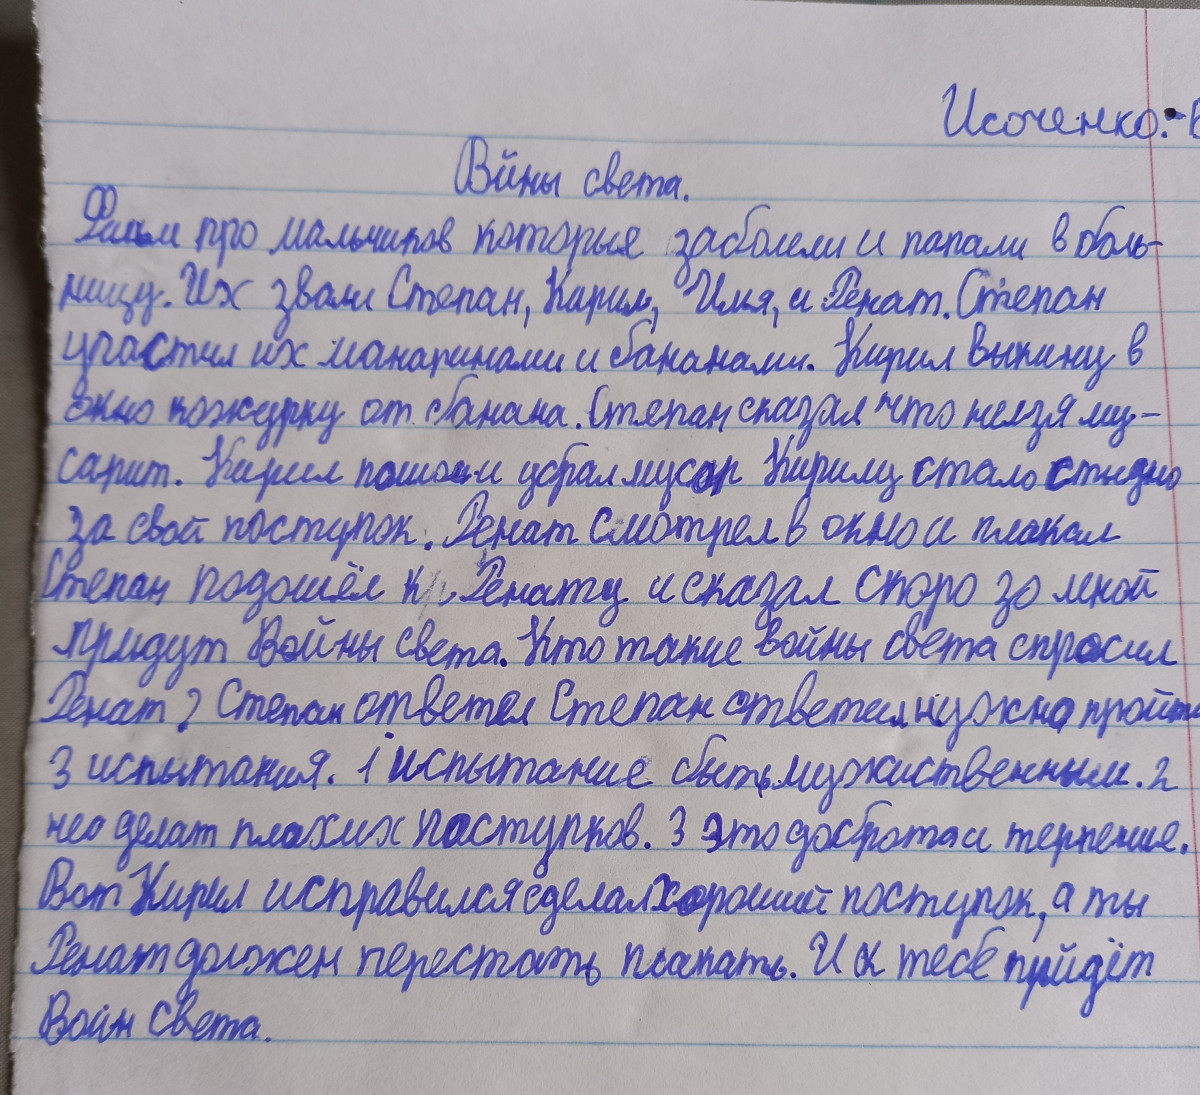 Исоченко.
Війны света.
Фильм про мальчиков которые заболели и папали в боль-
ницу. Их звали Степан, Кирил, Илья, и Ренат. Степан
участил их манаринами и бананами. Кирил выкину в
окно кожурку от банана. Степан сказал что нелзя му-
сарит. Кирил пошол и убрал мусор Кирилу стало стыдно
за свой поступок. Ренат смотрел в окно и плакал
Степан подошёл к Ренату и сказал скоро за мной
придут Войны света. Кто такие войны света спросил
Ренат? Степан ответел Степан ответил нужно пройти
3 испытания. 1 испытание быть мужиственным. 2
нео делат плохих паступков. 3 это доброта и терпение.
Вот Кирил исправился сделал хороший поступок, а ты
Ренат должен перестать плакать. И к тебе прийдёт
Войн света.